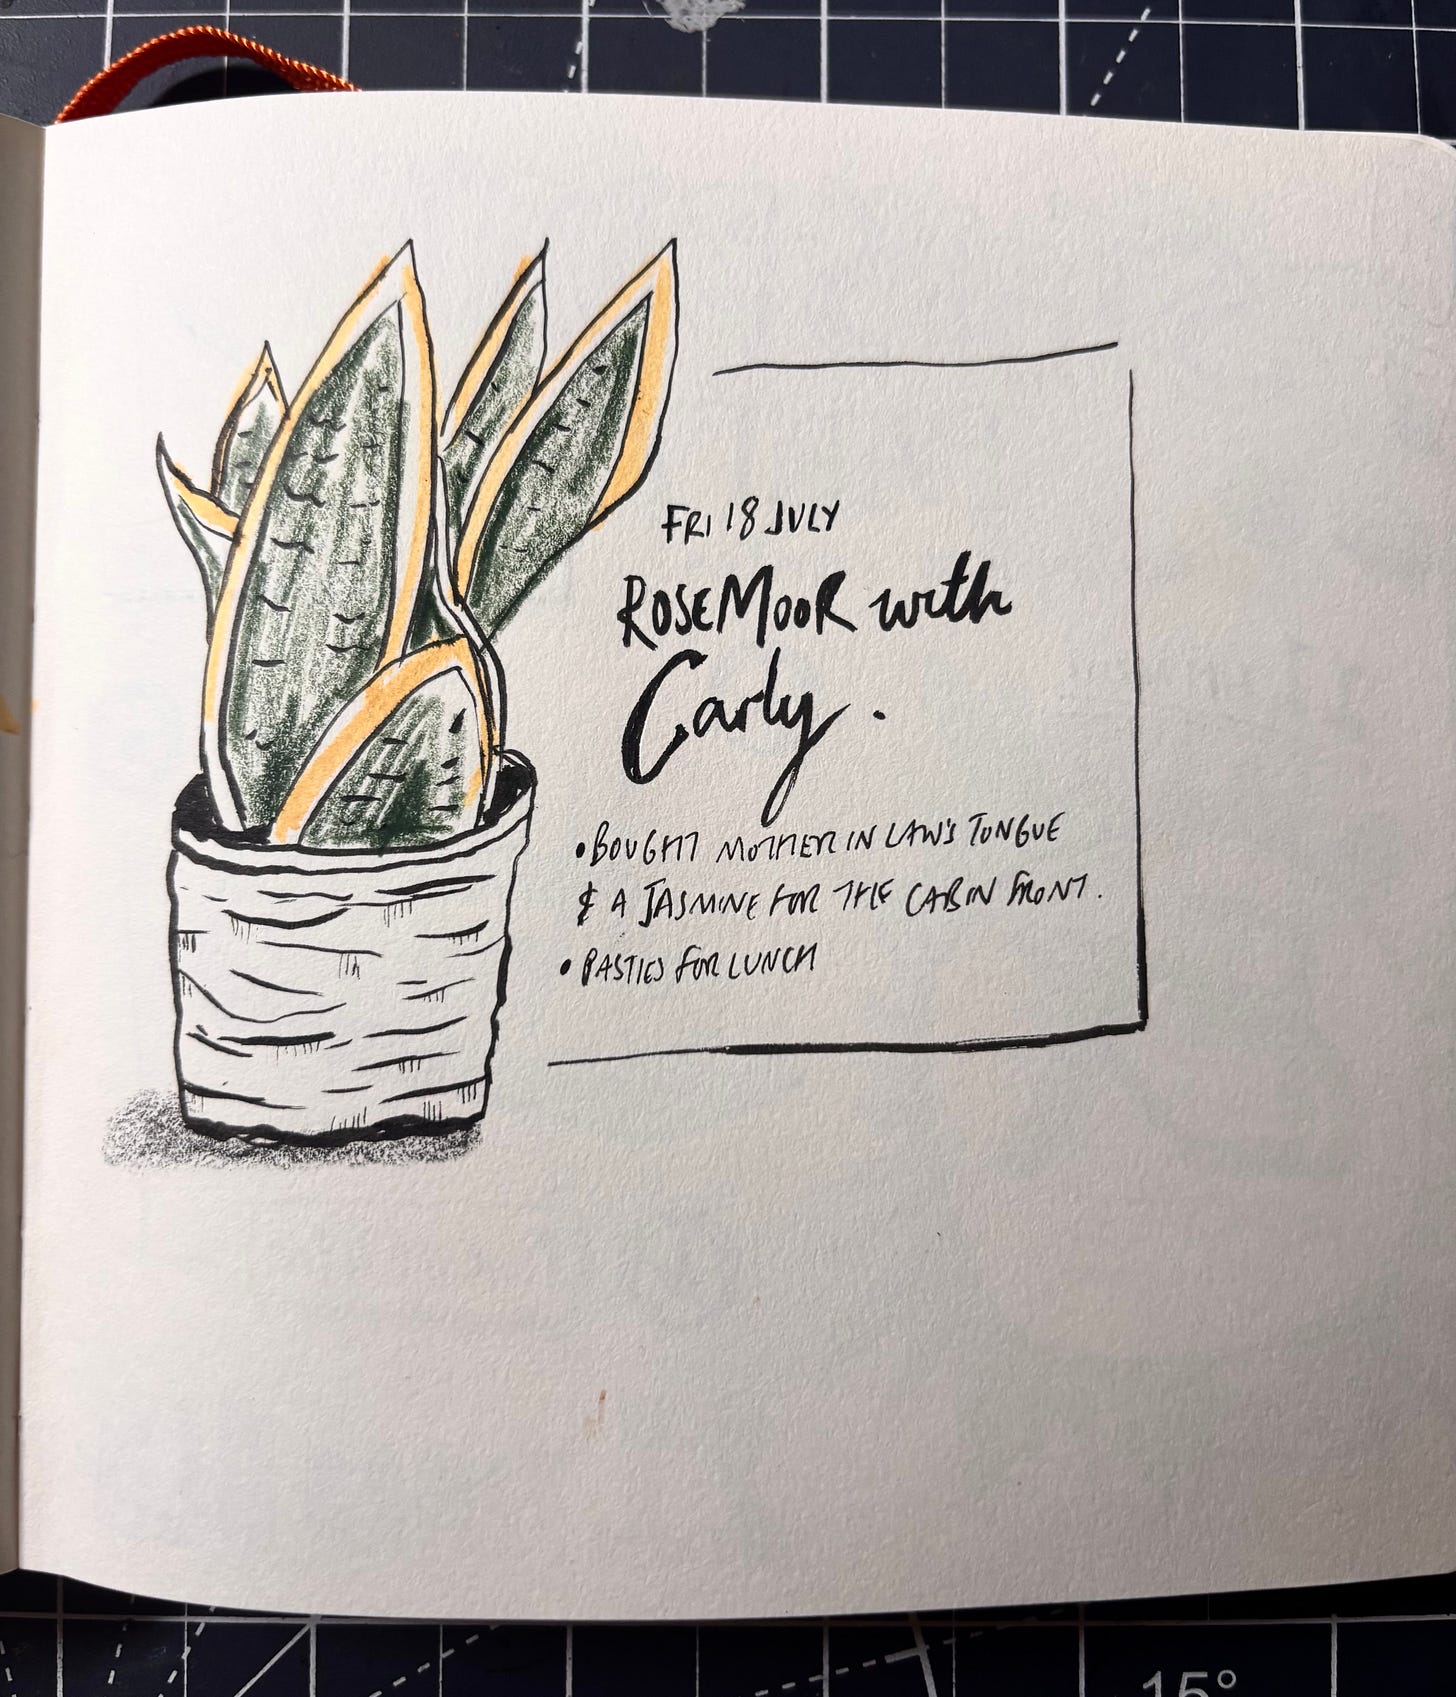 FRI 18 JULY
ROSEMOOR with
Carly.
• BOUGHT MOTHER IN LAW'S TONGUE
& A JASMINE FOR THE CABIN FRONT.
• PASTIES FOR LUNCH
15°